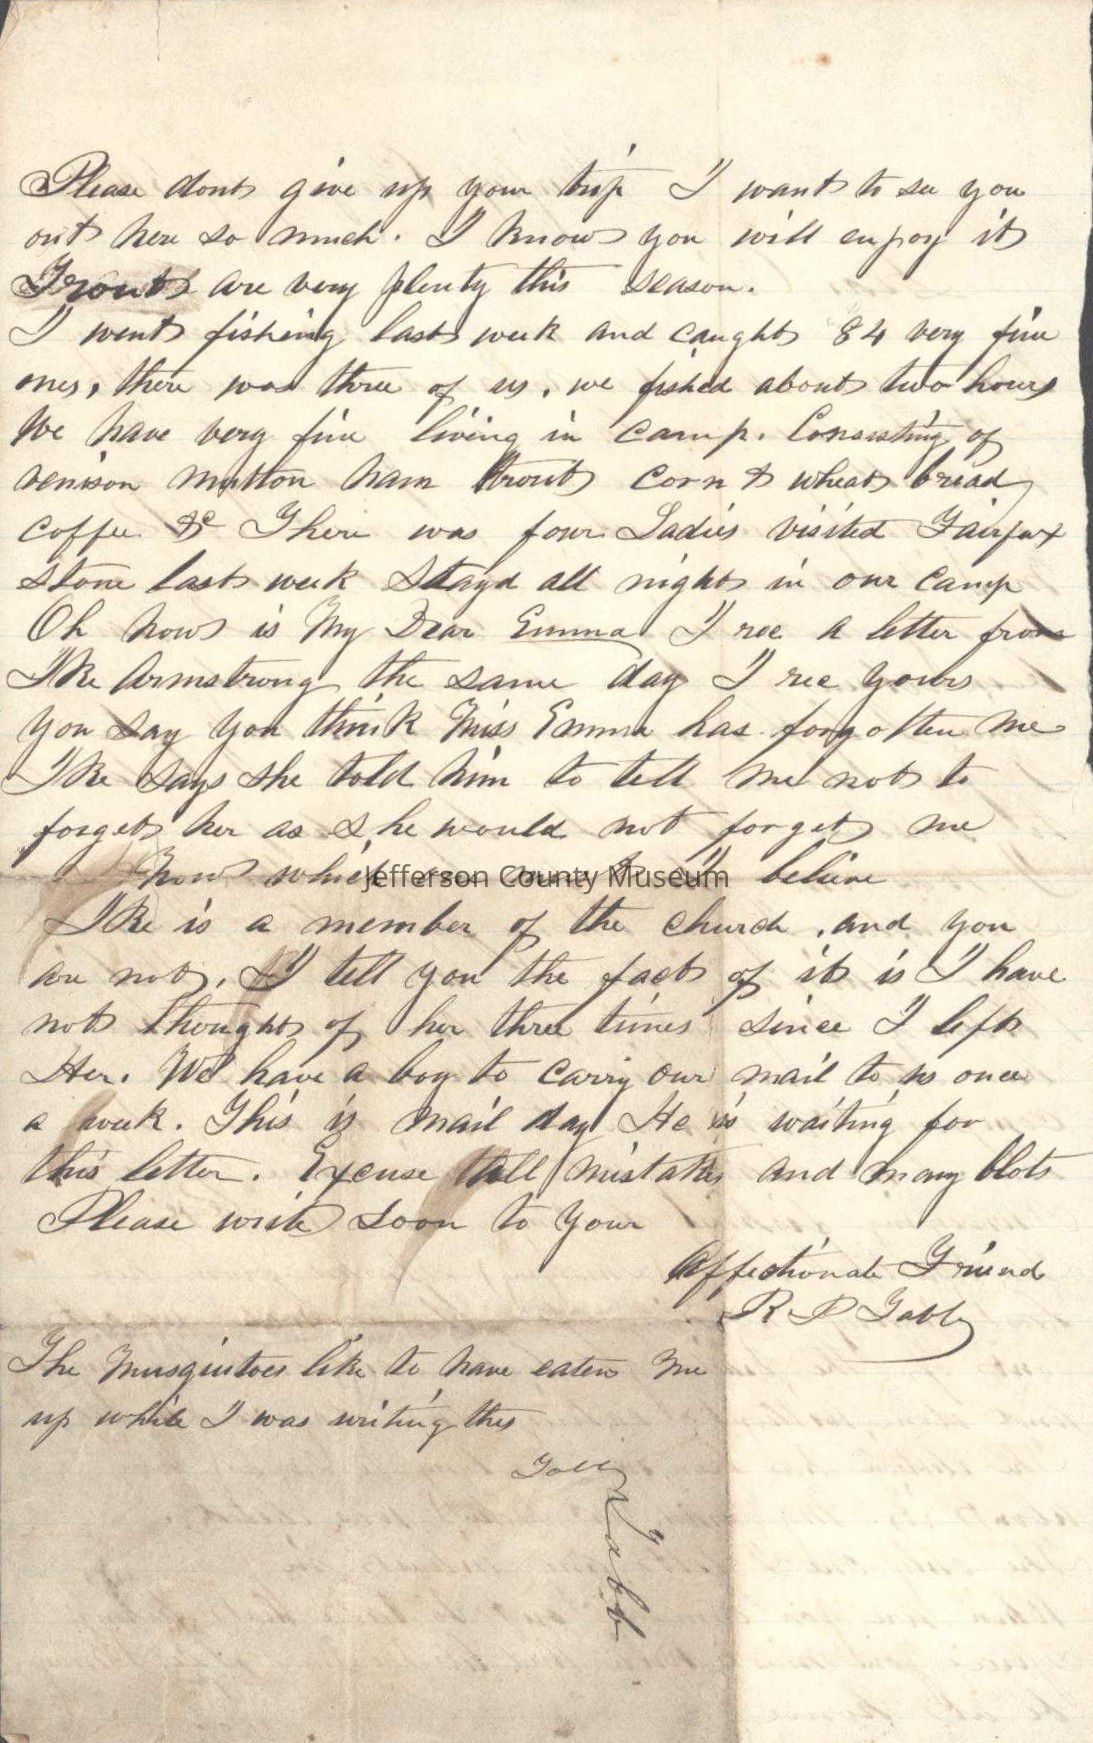 Please dont give up your trip I want to see you
out here so much. I know you will enjoy it
Trout are very plenty this season.
I went fishing last week and caught 84 very fine
ones, there was three of us, we fished about two hours
We have very fine living in camp. Consisting of
venison mutton ham trout corn & wheat bread
coffee &c There was four Ladies visited Fairfax
stone last week stayd all night in our camp
Oh how is My Dear Emma I rec a letter from
Ike Armstrong the same day I rec yours
you say you think Miss Emma has forgotten me
Ike says she told him to tell me not to
forget her as she would not forget me
Now which believe
Jefferson County Museum
Ike is a member of the church, and you
are not, I tell you the fact of it is I have
not thought of her three times since I left
Her. We have a boy to carry our mail to us once
a week. This is mail day He is waiting for
this letter. Excuse all mistakes and many blots
Please write soon to your
Affectionate Friend
R P Tabb
The Musquitoes like to have eaten me
up while I was writing this
Tabb
Tabb